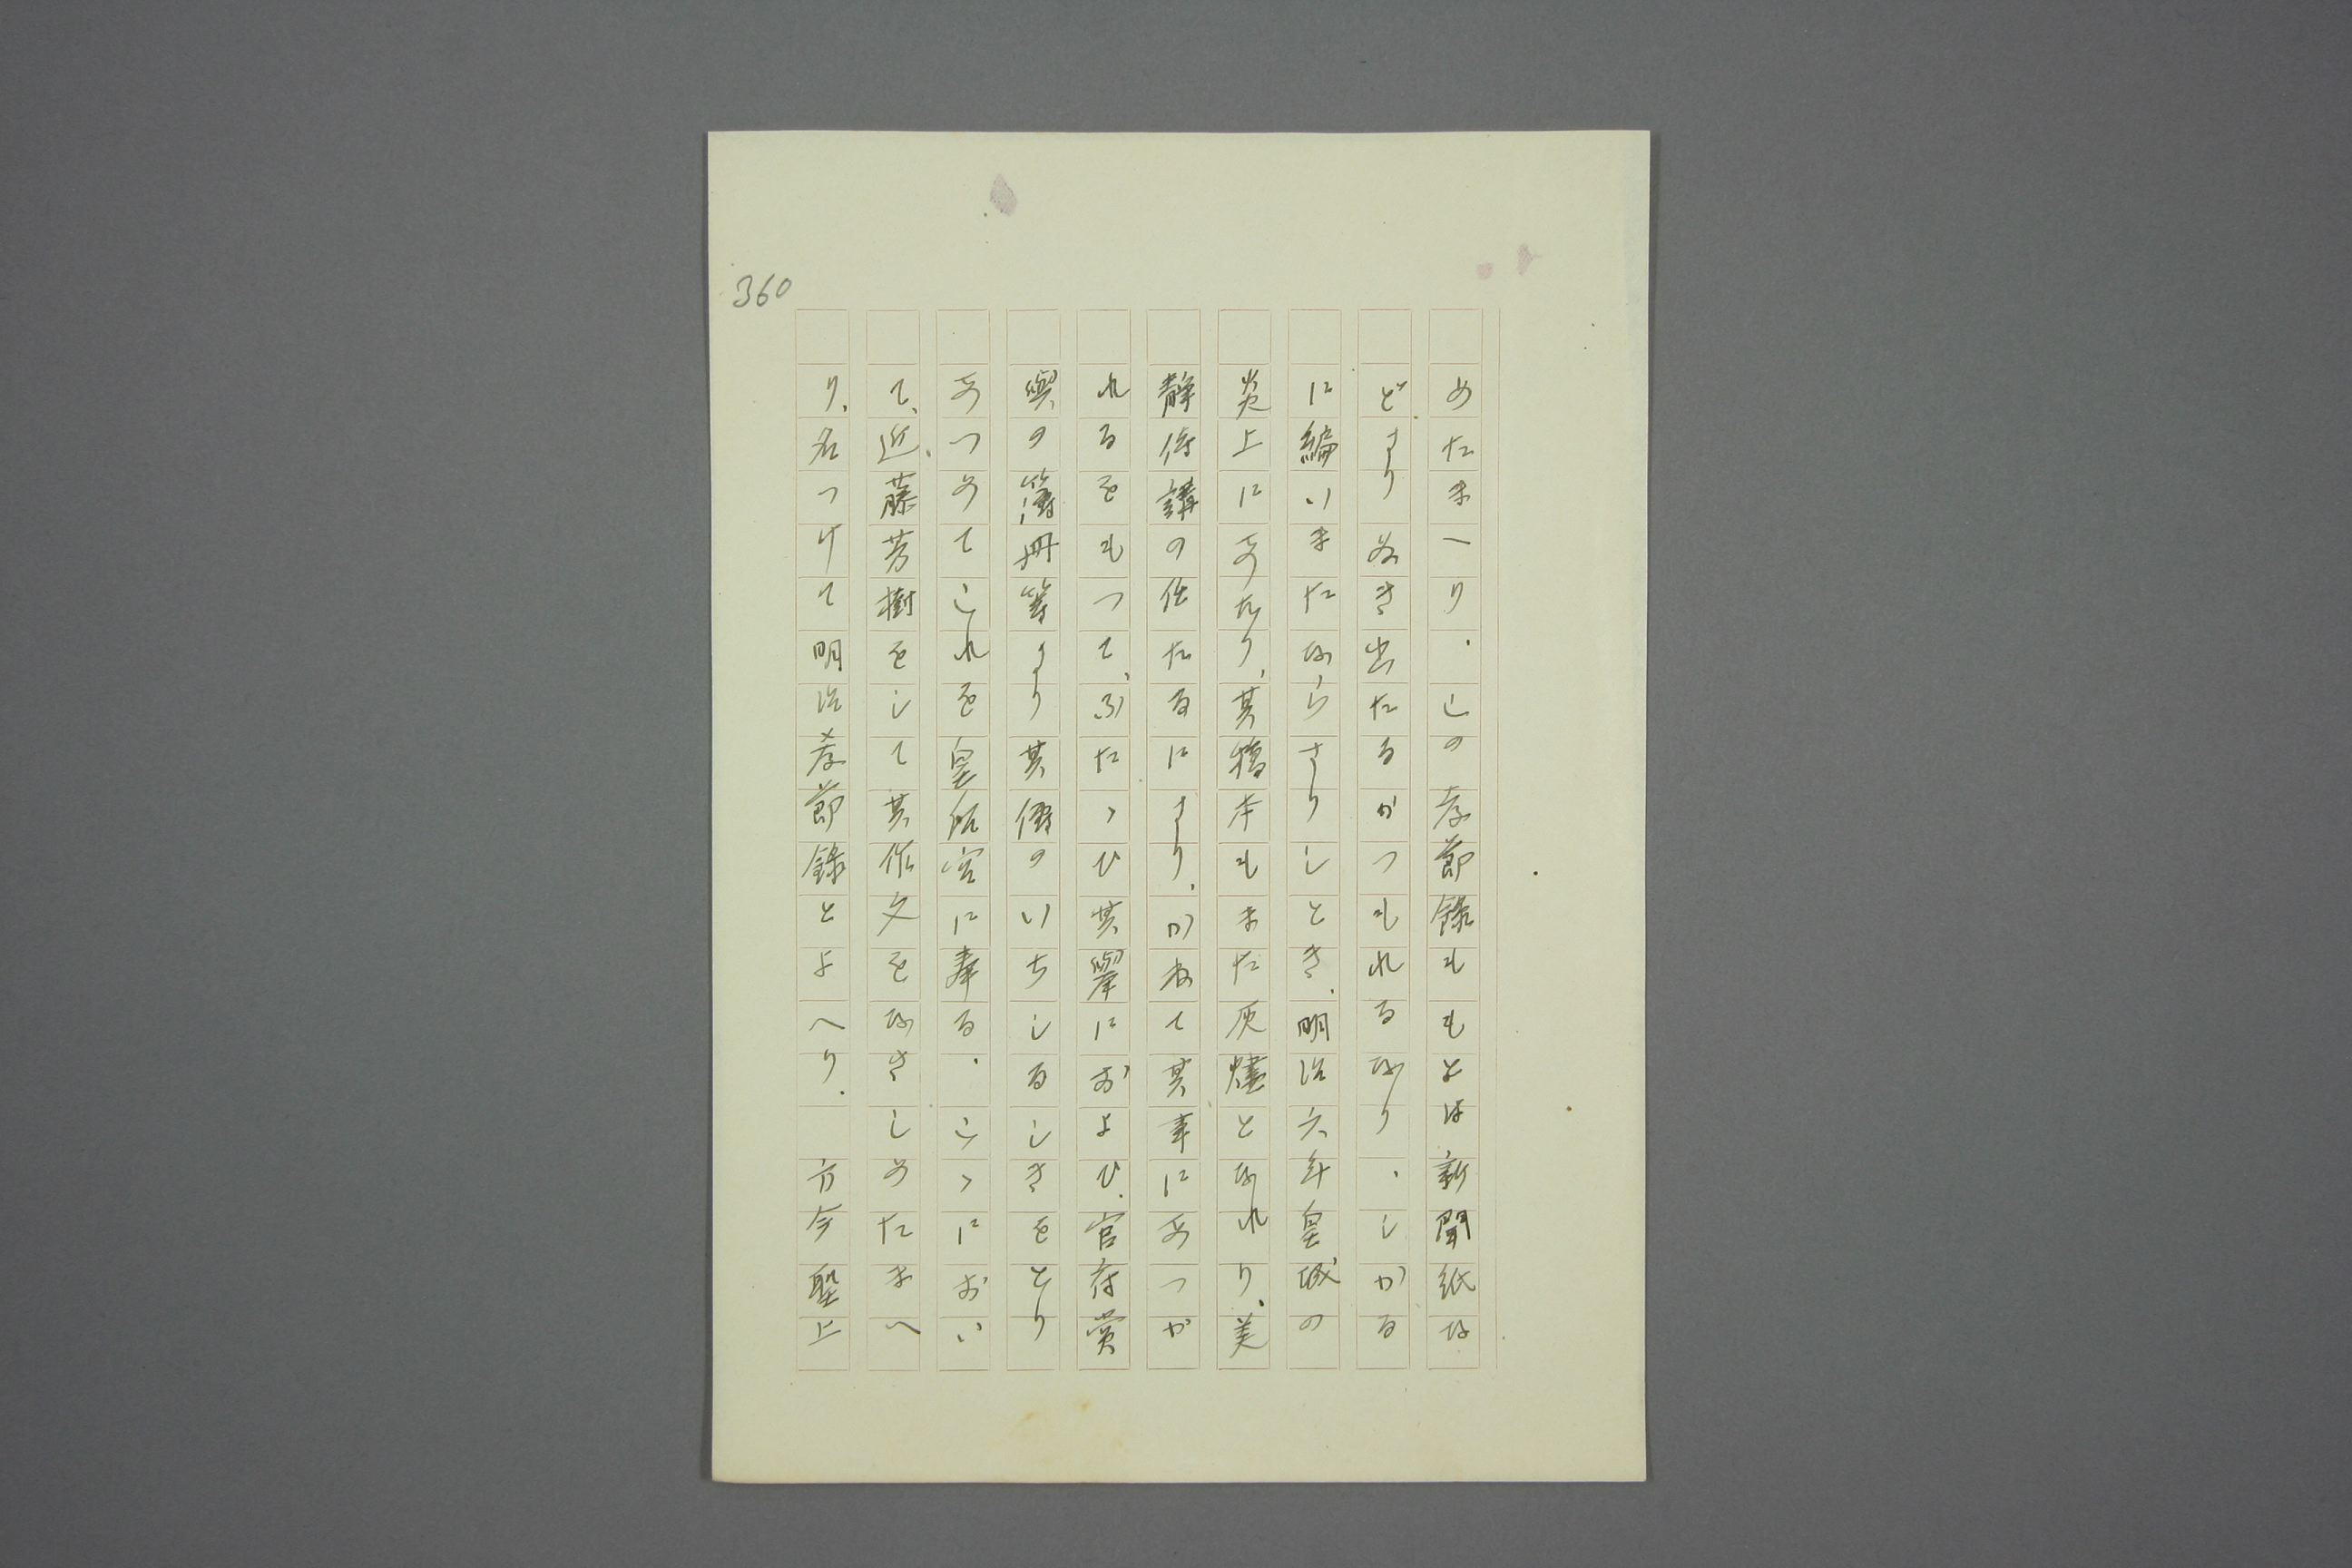 360
めたまへり.この孝節錄ももとは新聞紙な
どよりぬき出たるかつもれるなり.しかる
に編いまたならさりしとき.明治六年皇城の
炎上にあたり、其稿本もまた灰燼となれり、美
靜侍講の任たるにより.かねて其事にあつか
れるをもつて、ふたゝひ其擧におよひ.官府賞
與の簿冊等より其儕のいちしるしきをとり
あつめてこれを皇后宮に奉る.こゝにおい
て、近藤芳樹をして其作文をなさしめたまへ
り.名つけて明治孝節錄とよへり.方今聖上